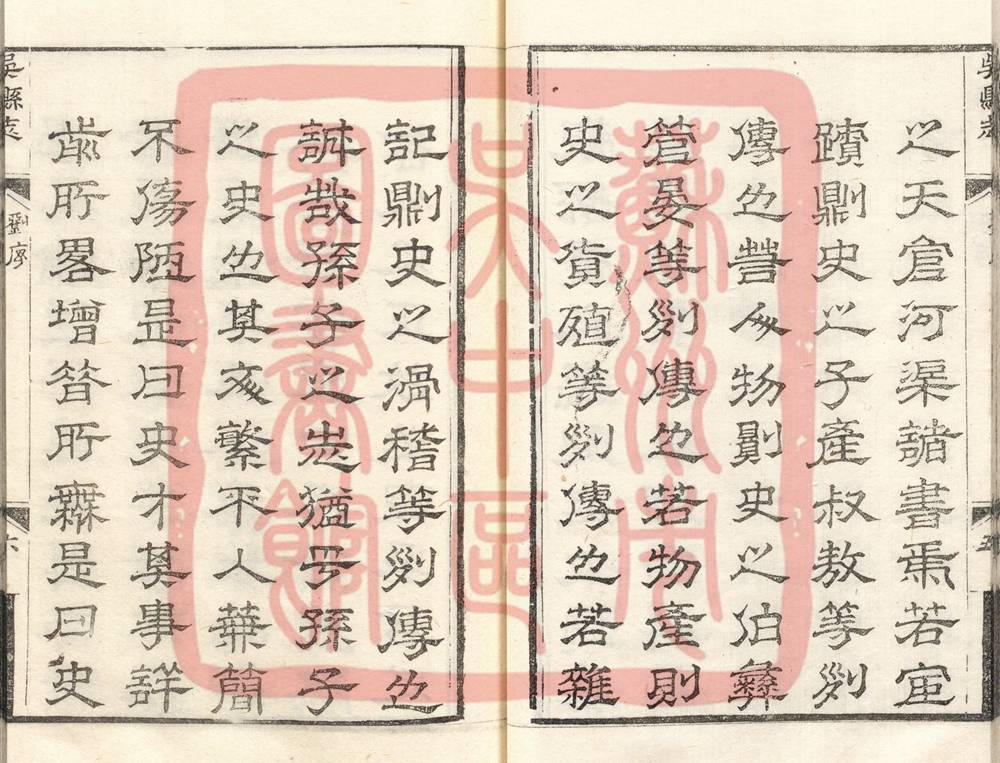 吳縣志
五
之天官河渠諸書焉若宦
蹟則史之子產叔敖等列
傳也人物則史之伯彝
管晏等列傳也若物產則
史之貨殖等列傳也若雜
記則史之滑稽等列傳也
誠哉孫子之志猶乎孫子
之史也其文繁不入蕪簡
不傷陋是曰史才其事詳
歬所畧增昔所無是曰史
吳縣志
劉序
六
蘇州市
吳中區
圖書館